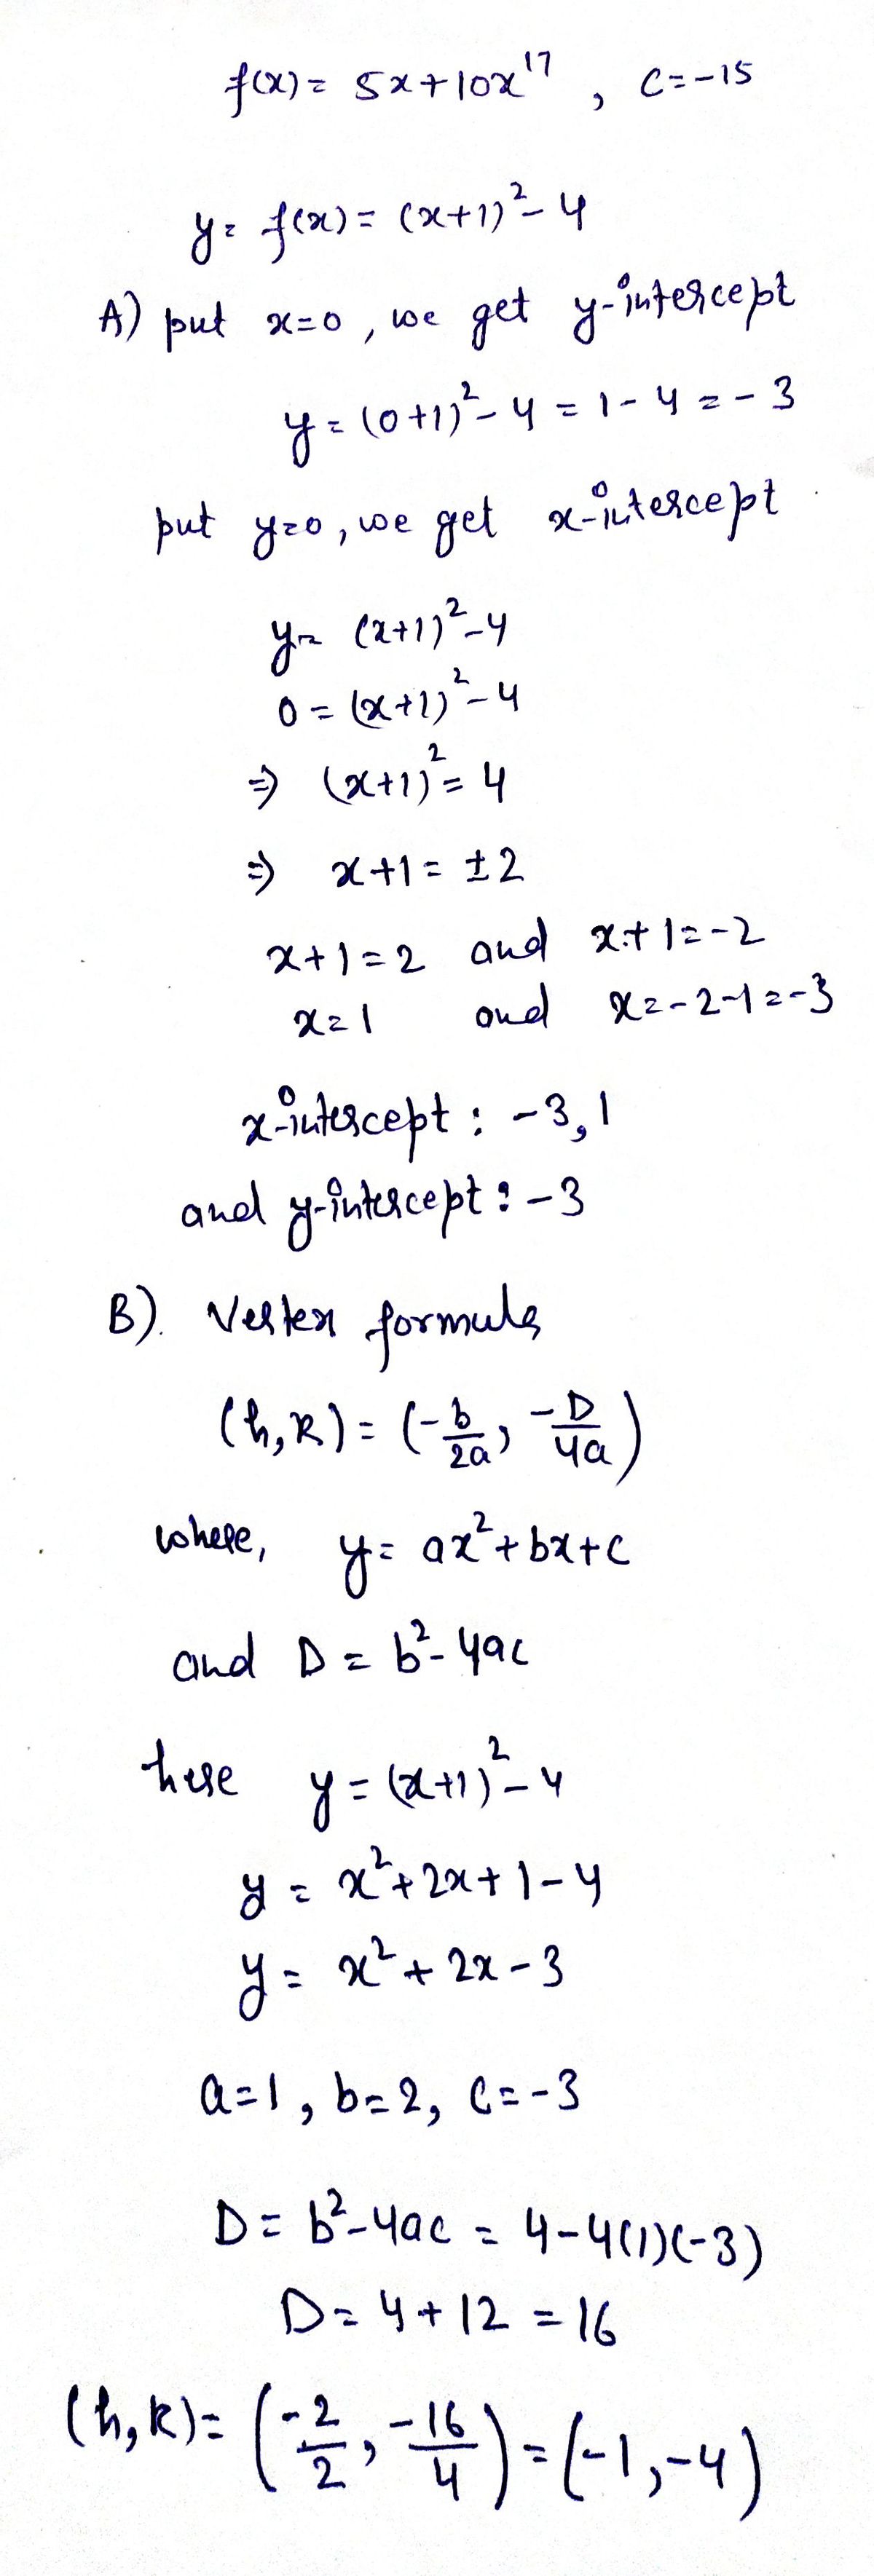 f(x) = 5x+10x¹⁷ , C=-15
y = f(x) = (x+1)² - 4
A) put x=0, we get y-intercept
y = (0+1)² - 4 = 1 - 4 = - 3
put y=0, we get x-intercept
y = (x+1)² - 4
0 = (x+1)² - 4
⇒ (x+1)² = 4
⇒ x+1 = ±2
x+1 = 2 and x+1 = -2
x=1 and x = -2-1 = -3
x-intercept : -3, 1
and y-intercept : -3
B). Vertex formula
(h,k) = (-b/2a, -D/4a)
where, y = ax² + bx + c
and D = b² - 4ac
here y = (x+1)² - 4
y = x² + 2x + 1 - 4
y = x² + 2x - 3
a=1, b=2, c=-3
D = b² - 4ac = 4 - 4(1)(-3)
D = 4 + 12 = 16
(h,k) = (-2/2, -16/4) = (-1, -4)